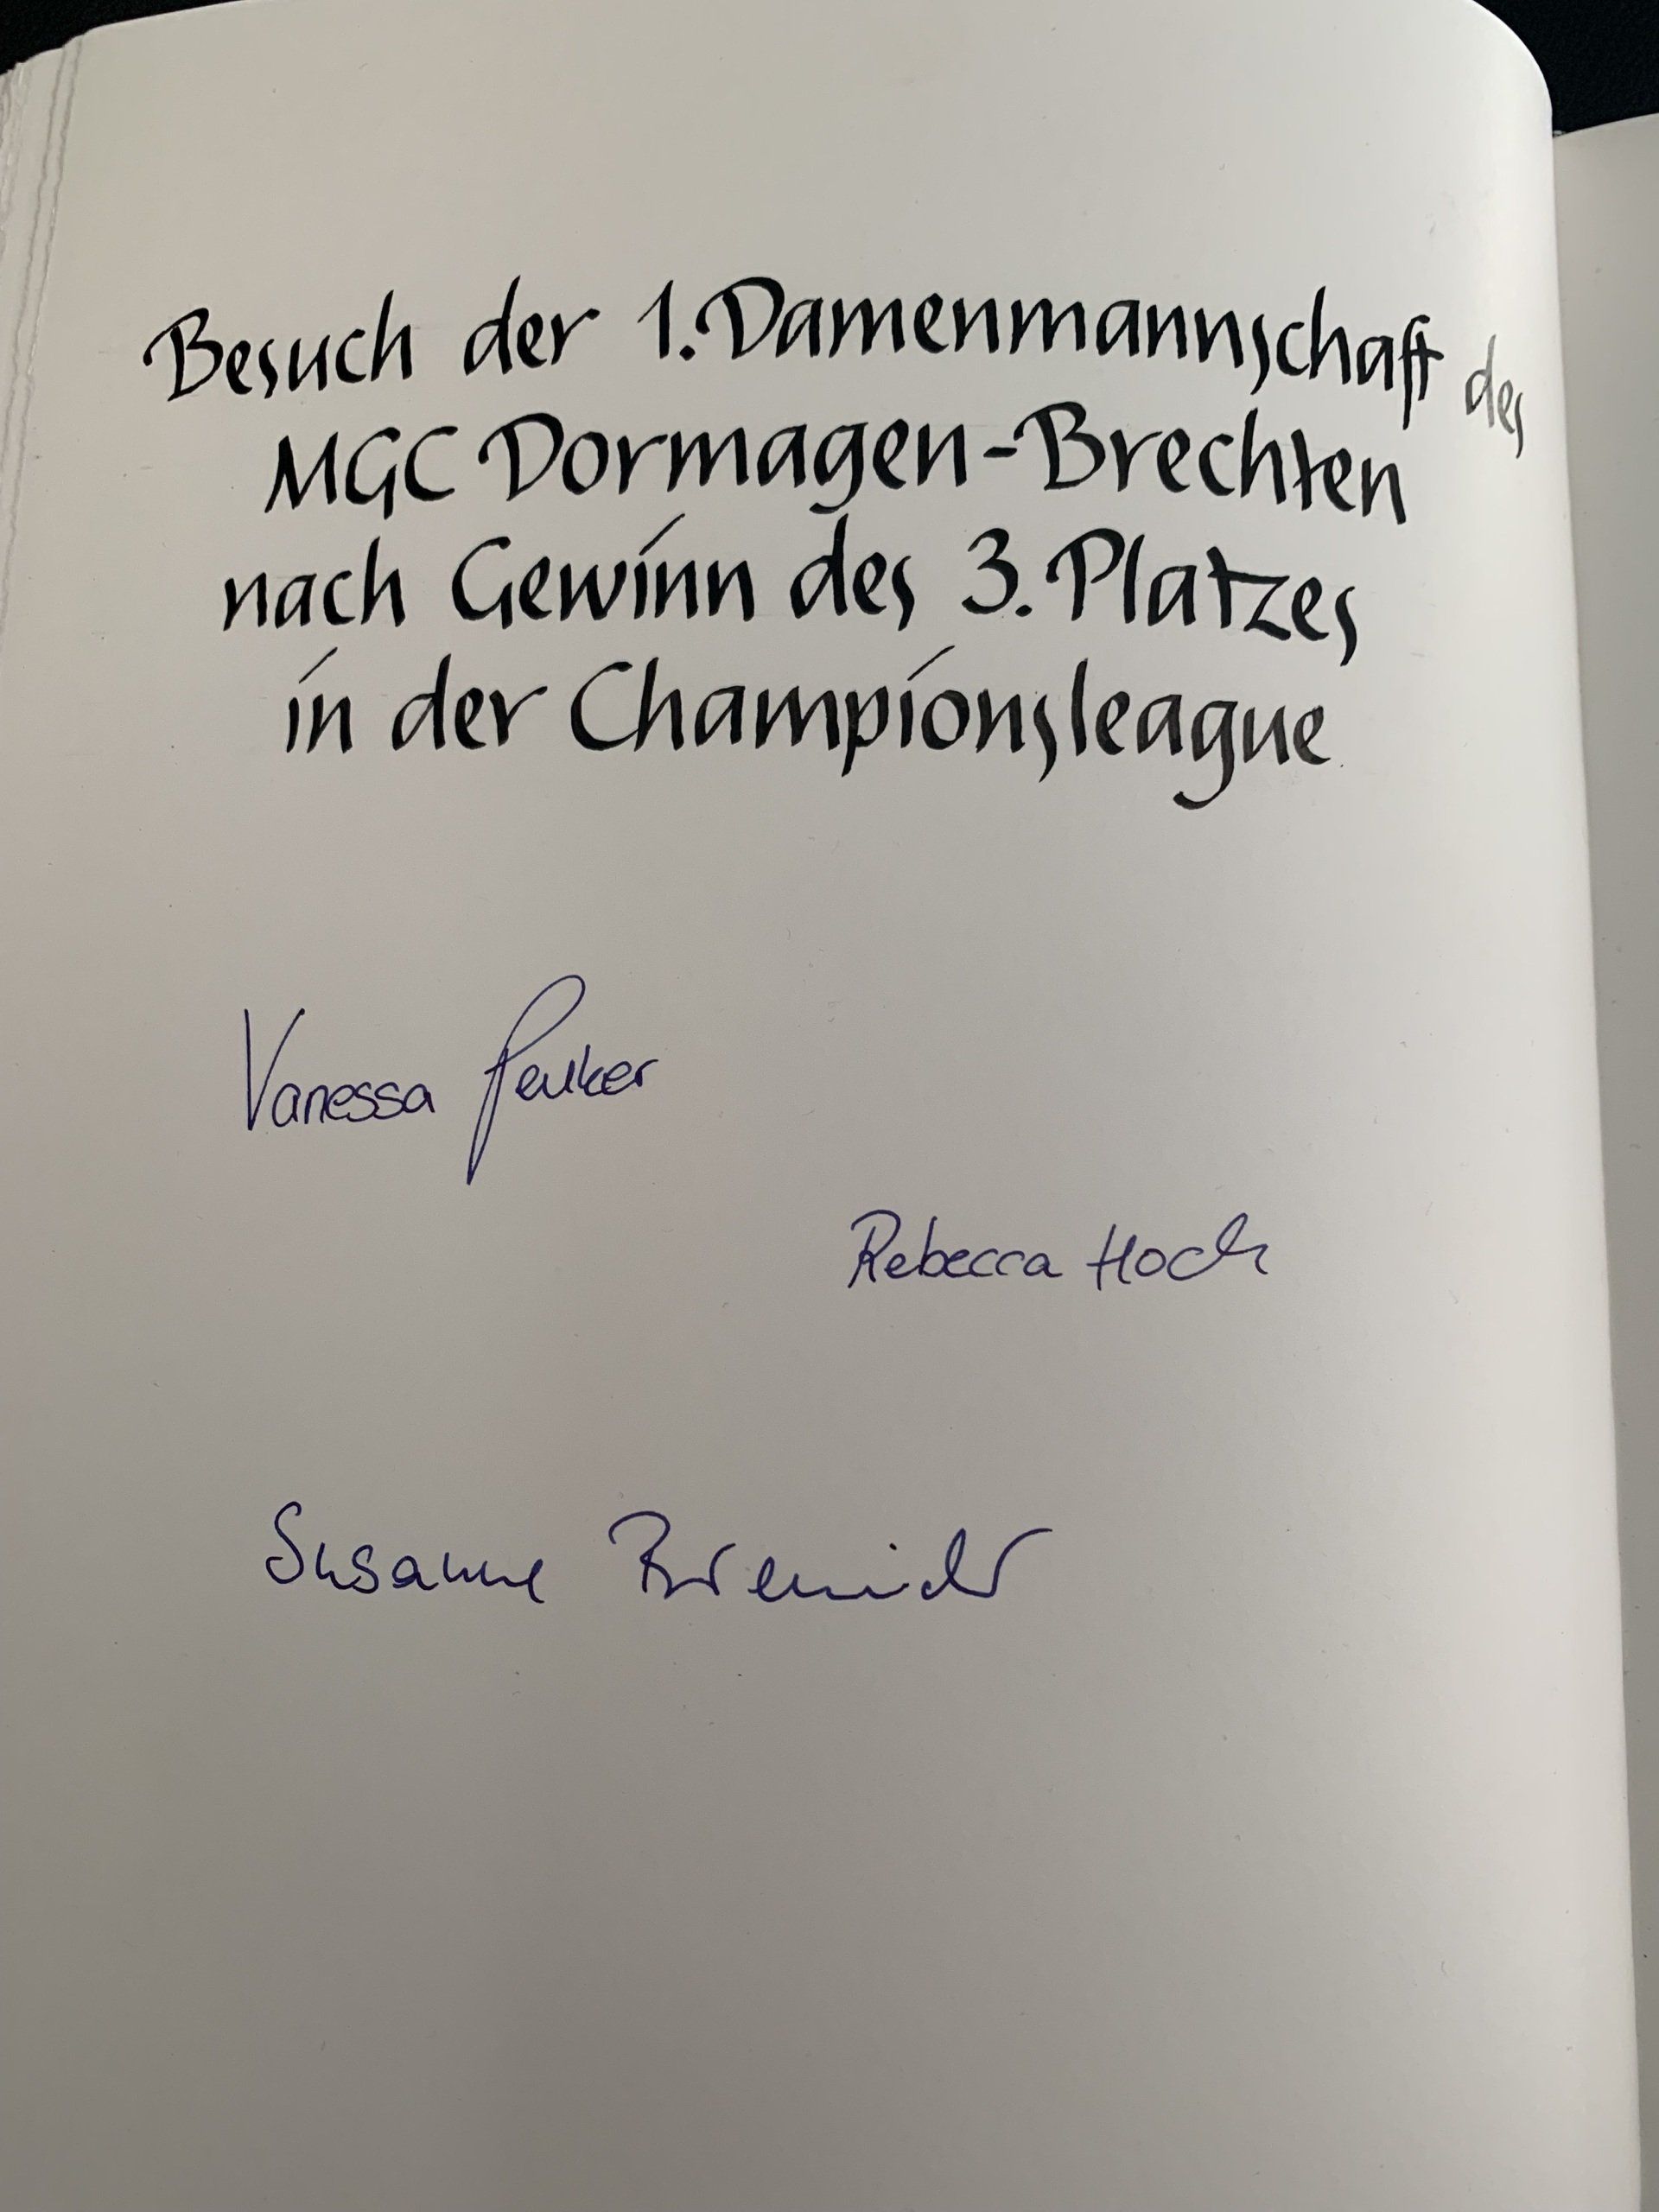 Besuch der 1. Damenmannschaft des
MGC Dormagen-Brechten
nach Gewinn des 3. Platzes
in der Championsleague
Vanessa Peuker
Rebecca Hoch
Susanne